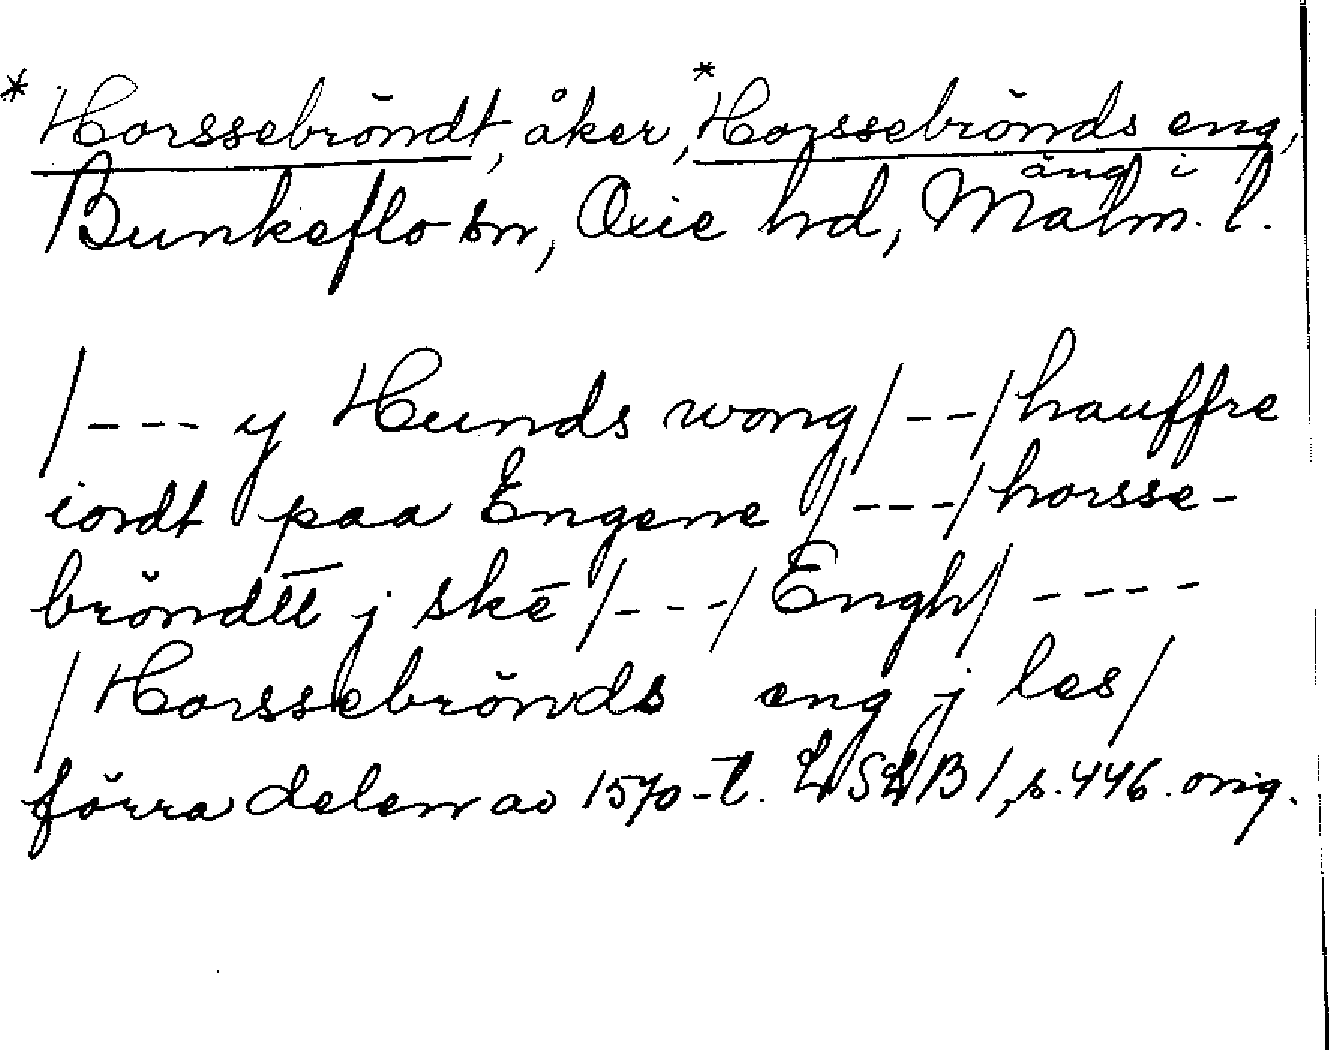 *Horssebröndt, åker, *Horssebrönds eng,
äng i
Bunkeflo sn, Oxie hd, Malm. l.
/--- y Hunds wong/--/hauffre
iordt paa Engenne /---/horsse-
bröndtt j ske /---/Engh/ ----
/Horssebrönds eng j les/
förra delen av 1570-t. LSLB 1, s. 446. orig.